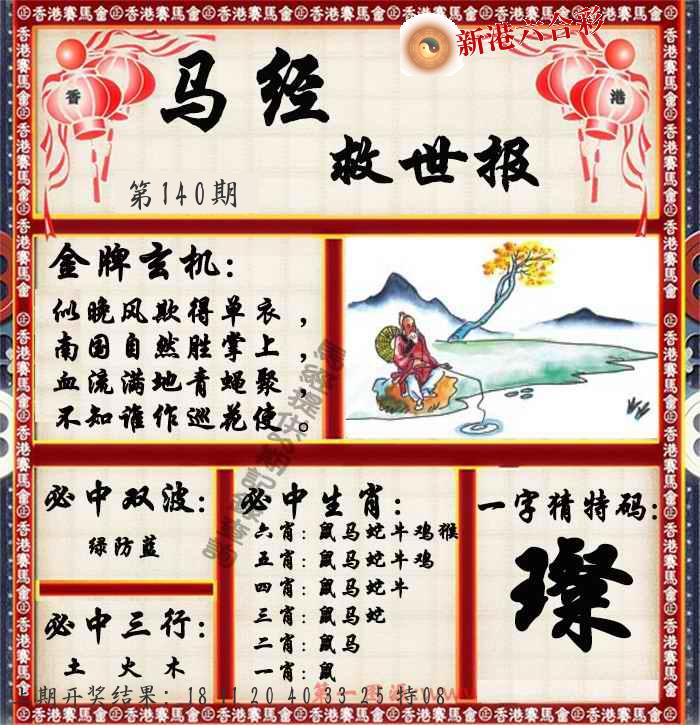 新港六合彩
香
港
马经
救世报
第140期
金牌玄机：
似晚风欺得单衣，
南国自然胜掌上，
血流满地青蝇聚，
不知谁作巡花使。
必中双波：
绿防蓝
必中三行：
土 火 木
必中生肖：
六肖：鼠马蛇牛鸡猴
五肖：鼠马蛇牛鸡
四肖：鼠马蛇牛
三肖：鼠马蛇
二肖：鼠马
一肖：鼠
一字猜特码：
璨
期开奖结果：18 11 20 40 33 25 特08
香港赛馬會